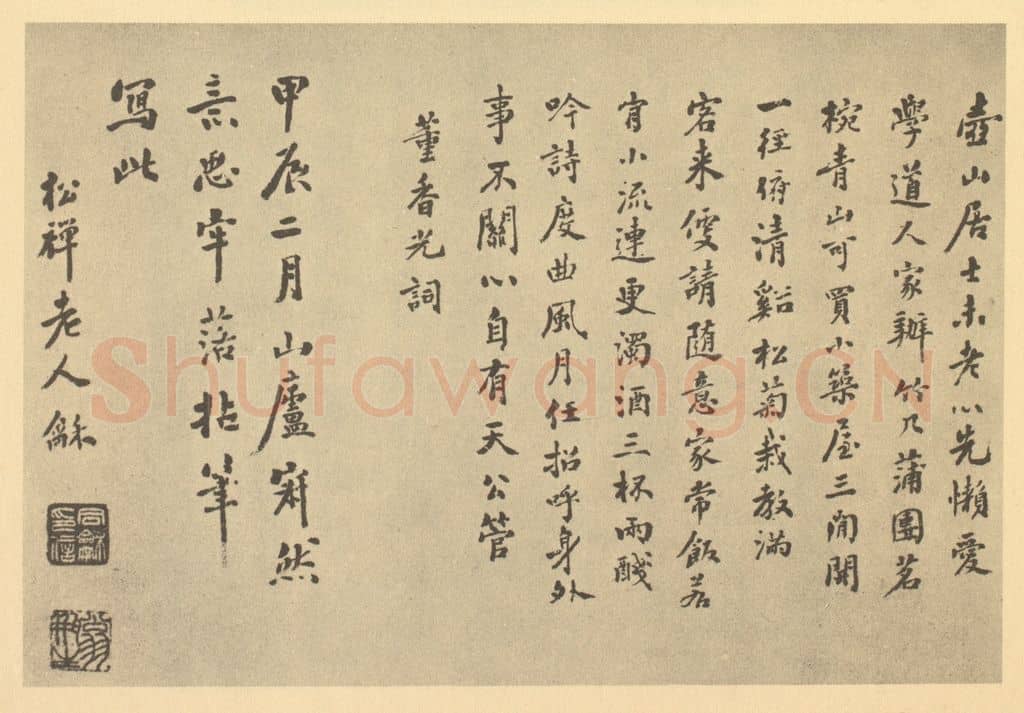 壺山居士未老心先懶愛
學道人家辦竹几蒲團茗
椀青山可買小築屋三間開
一徑俯清谿松菊栽教滿
客来便請随意家常飯若
肯小流連更濁酒三杯兩醆
吟詩度曲風月任招呼身外
事不關心自有天公管
董香光詞
甲辰二月山廬寂然
意思牢落拈筆
寫此
松禪老人龢
同龢印信
Shufawang.CN